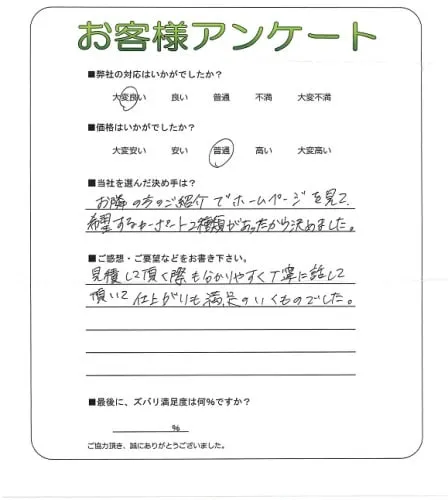 お客様アンケート
■弊社の対応はいかがでしたか？
大変良い　良い　普通　不満　大変不満
■価格はいかがでしたか？
大変安い　安い　普通　高い　大変高い
■当社を選んだ決め手は？
お隣の方のご紹介でホームページを見て、
希望するカーポート2種類があったから決めました。
■ご感想・ご要望などをお書き下さい。
見積して頂く際も分かりやすく丁寧に話して
頂いて仕上がりも満足のいくものでした。
■最後に、ズバリ満足度は何%ですか？
%
ご協力頂き、誠にありがとうございました。